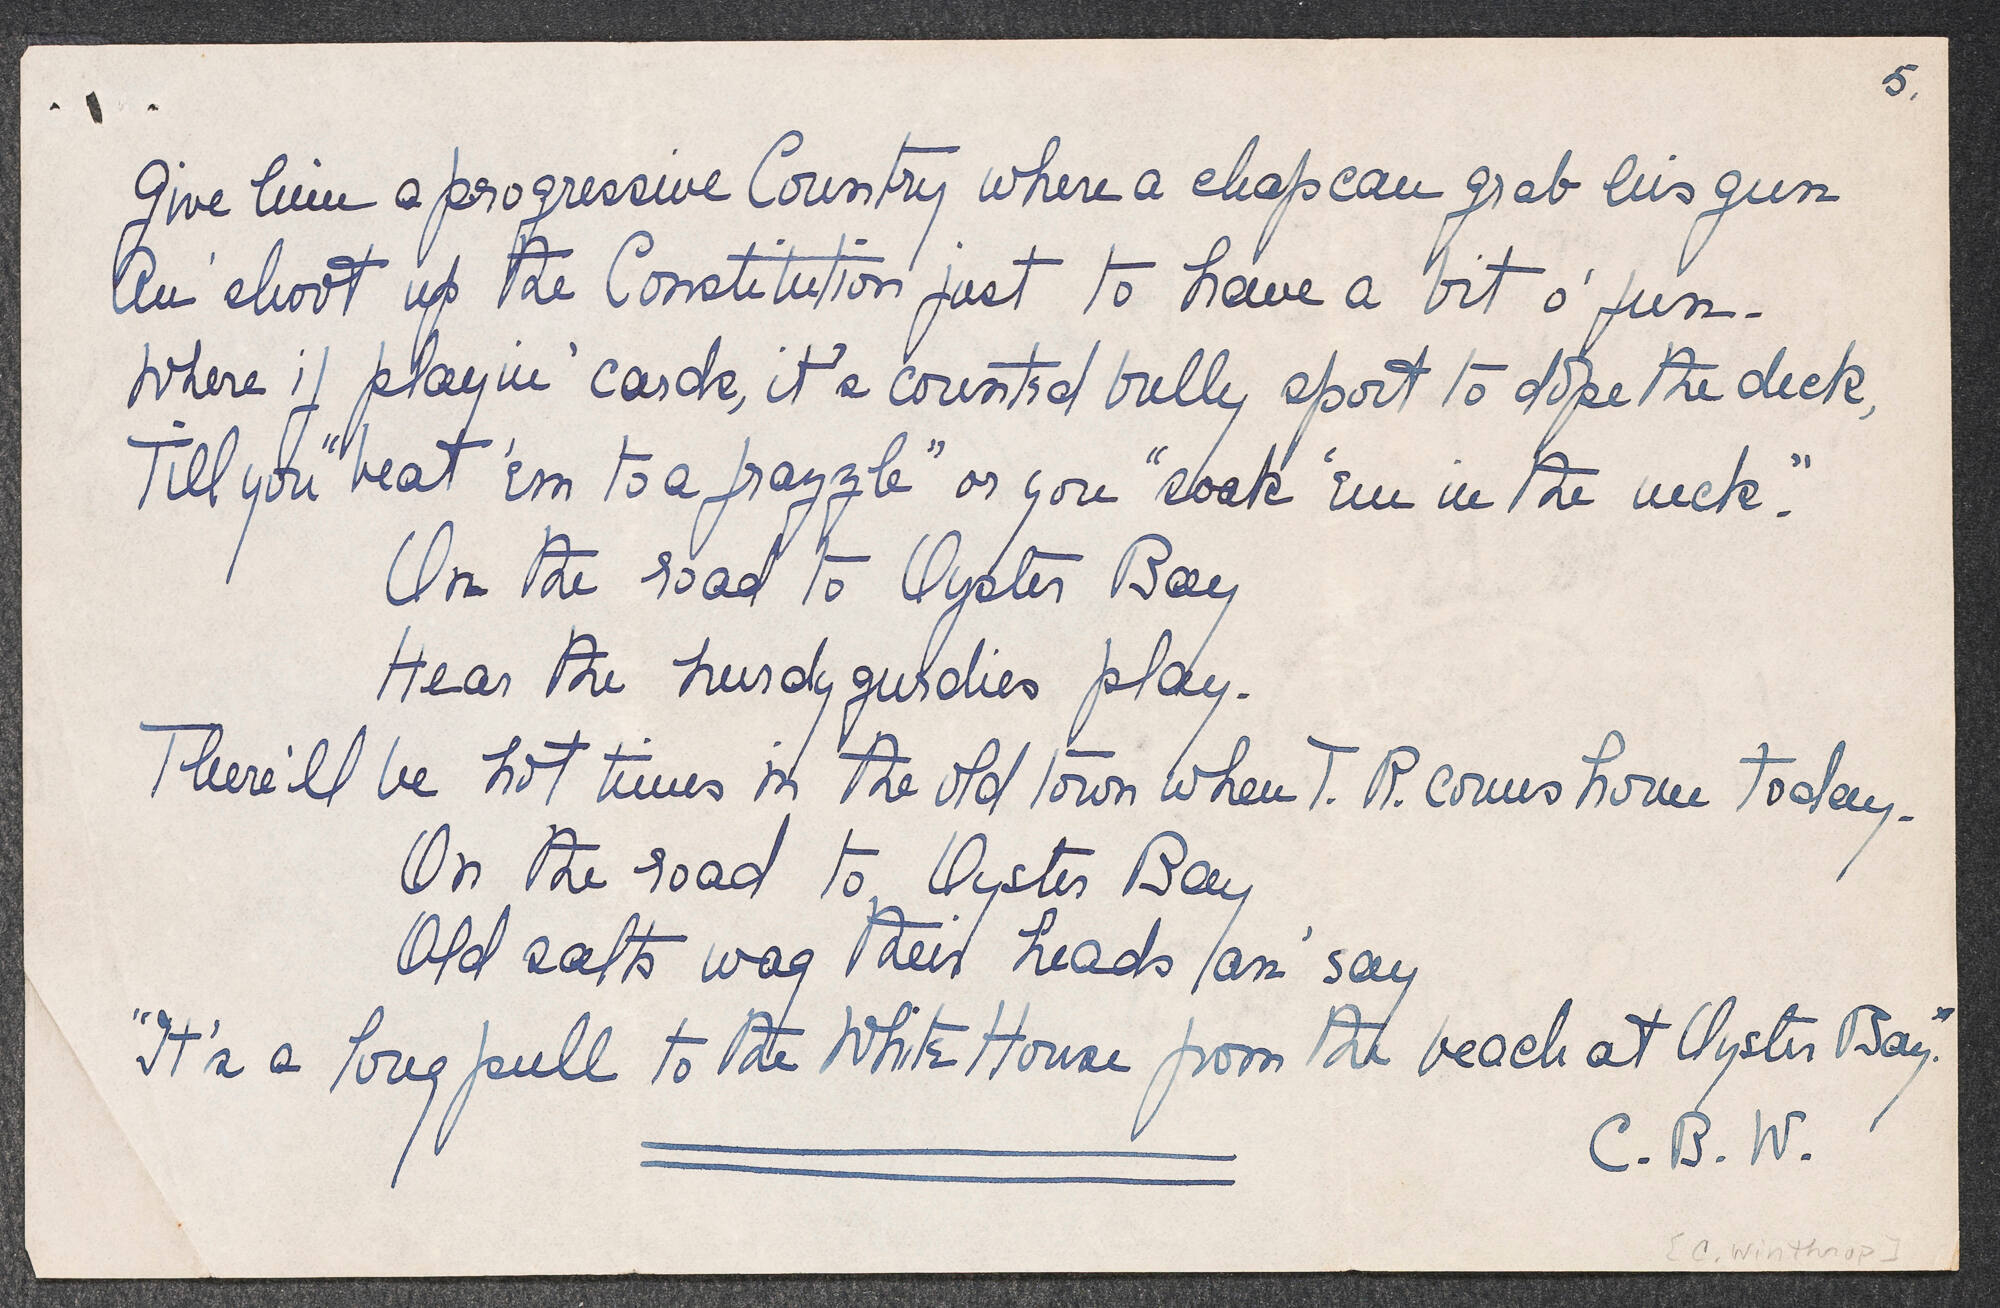 5.
Give him a progressive Country where a chap can grab his gun
An' shoot up the Constitution just to have a bit o' fun -
Where if playin' cards, it's counted bully sport to dope the deck,
Till you "beat 'em to a frazzle" or you "soak 'em in the neck."
On the road to Oyster Bay
Hear the hurdy gurdies play -
There'll be hot times in the old town when T. R. comes home today -
On the road to Oyster Bay
Old salts wag their heads an' say
"It's a long pull to the White House from the beach at Oyster Bay."
C. B. W.
[C. Winthrop]